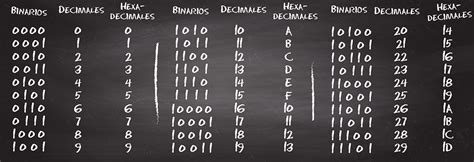 BINARIOS DECIMALES HEXA-DECIMALES BINARIOS DECIMALES HEXA-DECIMALES BINARIOS DECIMALES HEXA-DECIMALES
0000 0 0 1010 10 A 10100 20 14
0001 1 1 1011 11 B 10101 21 15
0010 2 2 1100 12 C 10110 22 16
0011 3 3 1101 13 D 10111 23 17
0100 4 4 1110 14 E 11000 24 18
0101 5 5 1111 15 F 11001 25 19
0110 6 6 10000 16 10 11010 26 1A
0111 7 7 10001 17 11 11011 27 1B
1000 8 8 10010 18 12 11100 28 1C
1001 9 9 10011 19 13 11101 29 1D